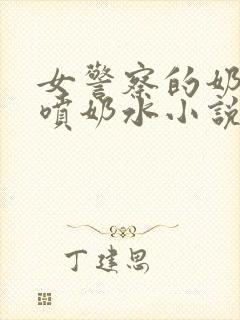 女警察的奶
喷奶水小説
丁建思